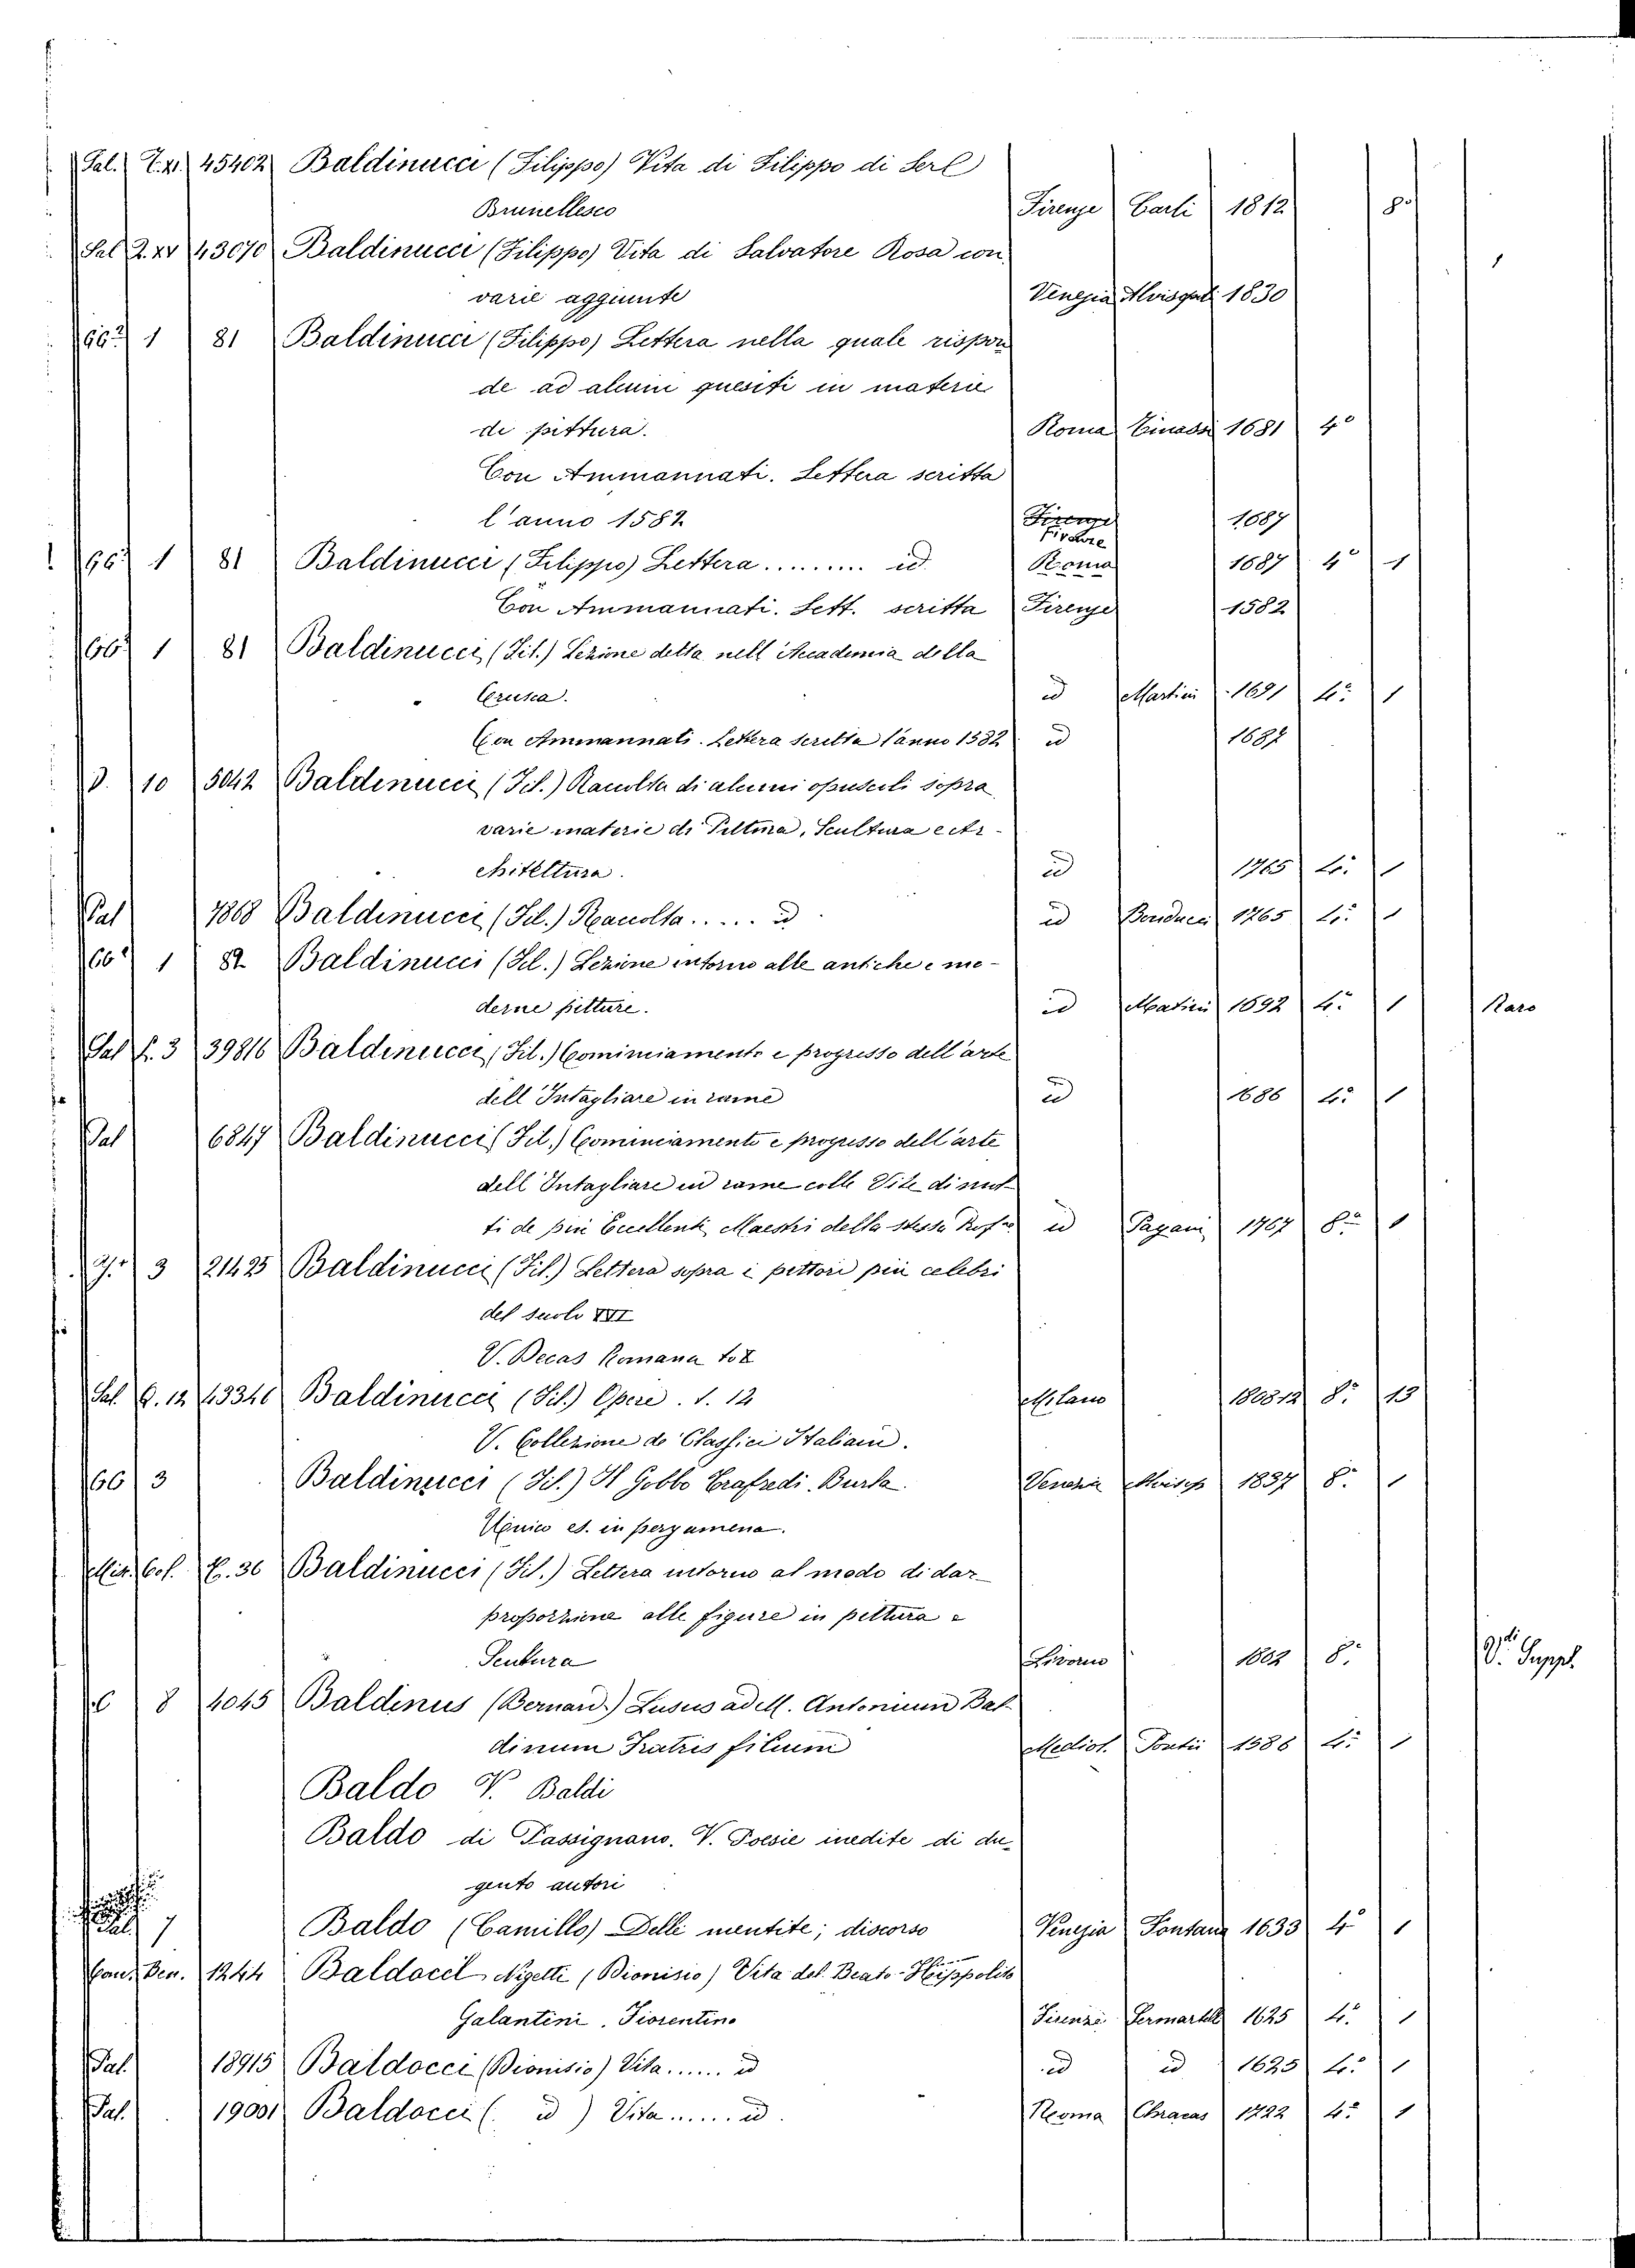 Sal. 45402 Baldinucci (Filippo) Vita di Filippo di Serl
Brunellesco Firenze Carli 1812 8º
Sal. 2. XV 43070 Baldinucci (Filippo) Vita di Salvatore Rosa con
varie aggiunte Venezia 1830 1
1 81 Baldinucci (Filippo) Lettera nella quale rispon
de ad alcuni quesiti in materie
di pittura. Roma 1681 4º
Con Ammannati. Lettera scritta
l'anno 1582 Firenze 1687
Firenze
1 81 Baldinucci (Filippo) Lettera ......... id. Roma 1687 4º 1
Con Ammannati. Lett. scritta Firenze 1582
1 81 Baldinucci (Fil.) Lezione detta nell'Accademia della
Crusca. id Martini 1691 4º 1
Con Ammannati. Lettera scritta l'anno 1582 id 1687
D. 10 5042 Baldinucci (Fil.) Raccolta di alcuni opusculi sopra
varie materie di Pittura, Scultura e Ar-
chitettura. id 1765 4º 1
Pal 7868 Baldinucci (Fil.) Raccolta ..... id id Bonducci 1765 4º 1
1 82 Baldinucci (Fil.) Lezione intorno alle antiche e mo-
derne pitture. id Matini 1692 4º 1 Raro
Sal f. 3 39816 Baldinucci (Fil.) Cominciamento e progresso dell'arte
dell'Intagliare in rame id 1686 4º 1
Pal 6847 Baldinucci (Fil.) Cominciamento e progresso dell'arte
dell'Intagliare in rame colle Vite di mol
ti de più Eccellenti Maestri della stessa Profne id Pagani 1767 8º 1
3 21425 Baldinucci (Fil.) Lettera sopra i pittori più celebri
del secolo XVI
V. Decas Romana to X
Sal. G. 12 43346 Baldinucci (Fil.) Opere. v. 12 Milano 1808 12 8º 13
V. Collezione de Classici Italiani.
3 Baldinucci (Fil.) Il Gobbo Grafredi. Burla. Venezia 1837 8º 1
Unico es. in pergamena.
Mis. Col. 36 Baldinucci (Fil.) Lettera intorno al modo di dar
proporzione alle figure in pittura e
Scultura Livorno 1802 8º Vdi Suppl.
8 4045 Baldinus (Bernard.) Lusus ad M. Antonium Bal
dinum Fratris filium Mediol. Pontii 1586 4º 1
Baldo V. Baldi
Baldo di Passignano. V. Poesie inedite di du
gento autori
Pal 7 Baldo (Camillo) Delle mentite; discorso Venezia Fontana 1633 4º 1
Ben. 1244 Baldocci Nigetti (Dionisio) Vita del Beato Hippolito
Galantini. Fiorentino Firenze Sermartelli 1625 4º 1
Pal. 18915 Baldocci (Dionisio) Vita ...... id id id 1625 4º 1
Pal. 19001 Baldocci ( id ) Vita ...... id. Roma Chracas 1722 4º 1